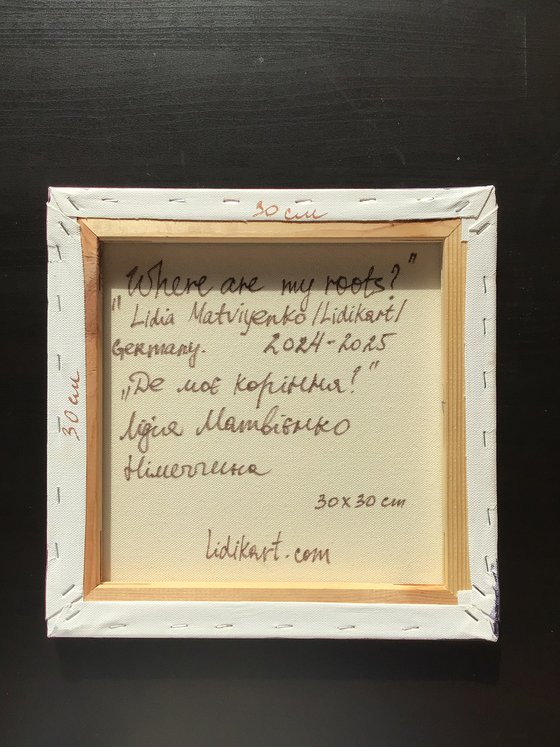 30 см
30 см
"Where are my roots?"
Lidia Matviyenko/Lidikart/
Germany. 2024-2025
„Де моє коріння?"
Лідія Матвієнко
Німеччина
30x30 cm
lidikart.com